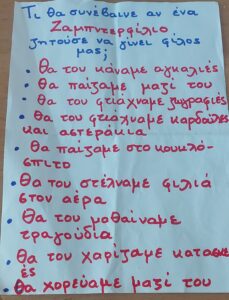 Τι θα συνέβαινε αν ένα
Ζαμπντερφίλιο
ζητούσε να γίνει φίλος
μας;
• Θα του κάναμε αγκαλιές
• Θα παίζαμε μαζί του
• Θα του φτιάχναμε ζωγραφιές
• Θα του φτιάχναμε καρδούλες
και αστεράκια
• Θα παίζαμε στο κουκλό-
σπιτο
• Θα του στέλναμε φιλιά
στον αέρα
• Θα του μαθαίναμε
τραγούδια
• Θα του χαρίζαμε κατασκευ
ές
• Θα χορεύαμε μαζί του